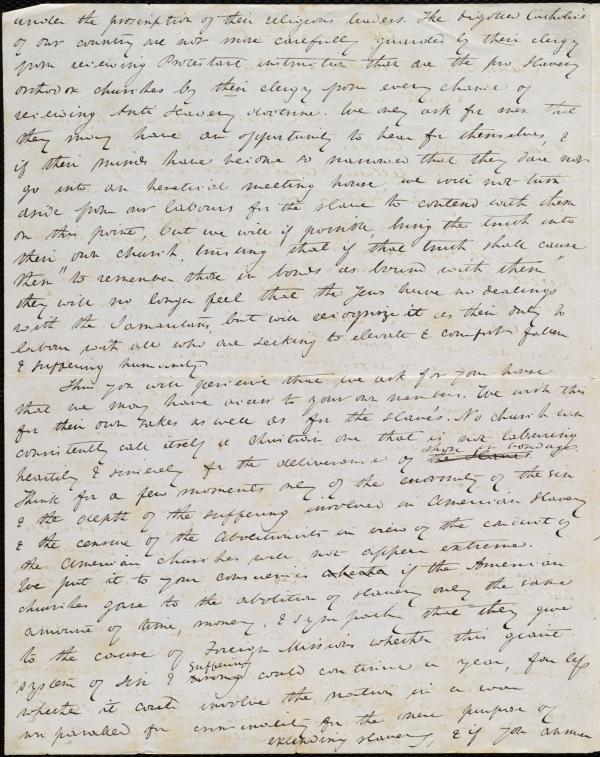 under the proscription of their religious leaders. The bigoted Catholics
of our country are not more carefully guarded by their clergy
from receiving Protestant instruction than are the pro slavery
orthodox churches by their clergy from every chance of
receiving Anti Slavery doctrine. We only ask for men that
they may have an opportunity to hear for themselves, &
if their minds have become so narrowed that they dare not
go into an heretical meeting house, we will not turn
aside from our labours for the slave to contend with them
on this point, but we will if possible, bring the truth into
their own church, trusting that if that truth shall cause
them "to remember those in bonds as bound with them"
they will no longer feel that the Jews have no dealings
with the Samaritans, but will recognize it as their duty to
labour with all who are seeking to elevate & comfort fallen
& suffering humanity
Thus you will perceive that we ask for your house
that we may have access to your own members. We wish this
for their own sakes as well as for the slave's. No church can
consistently call itself a Christian one that is not labouring
heartily & sincerely for the deliverance of the slaves those in bondage
Think for a few moments only of the enormity of the sin
& the depth of the suffering involved in American Slavery
& the censure of the Abolitionists in view of the conduct of
the American churches will not appear extreme.
We put it to your consciences whether if the American
churches gave to the abolition of slavery only the same
amount of time, money, & sympathy that they give
to the cause of Foreign Missions whether this giant
system of sin & wrong suffering could continue a year, far less
whether it could involve the nation in a war
unparalled for criminality for the mere purpose of
extending slavery, & if you answer